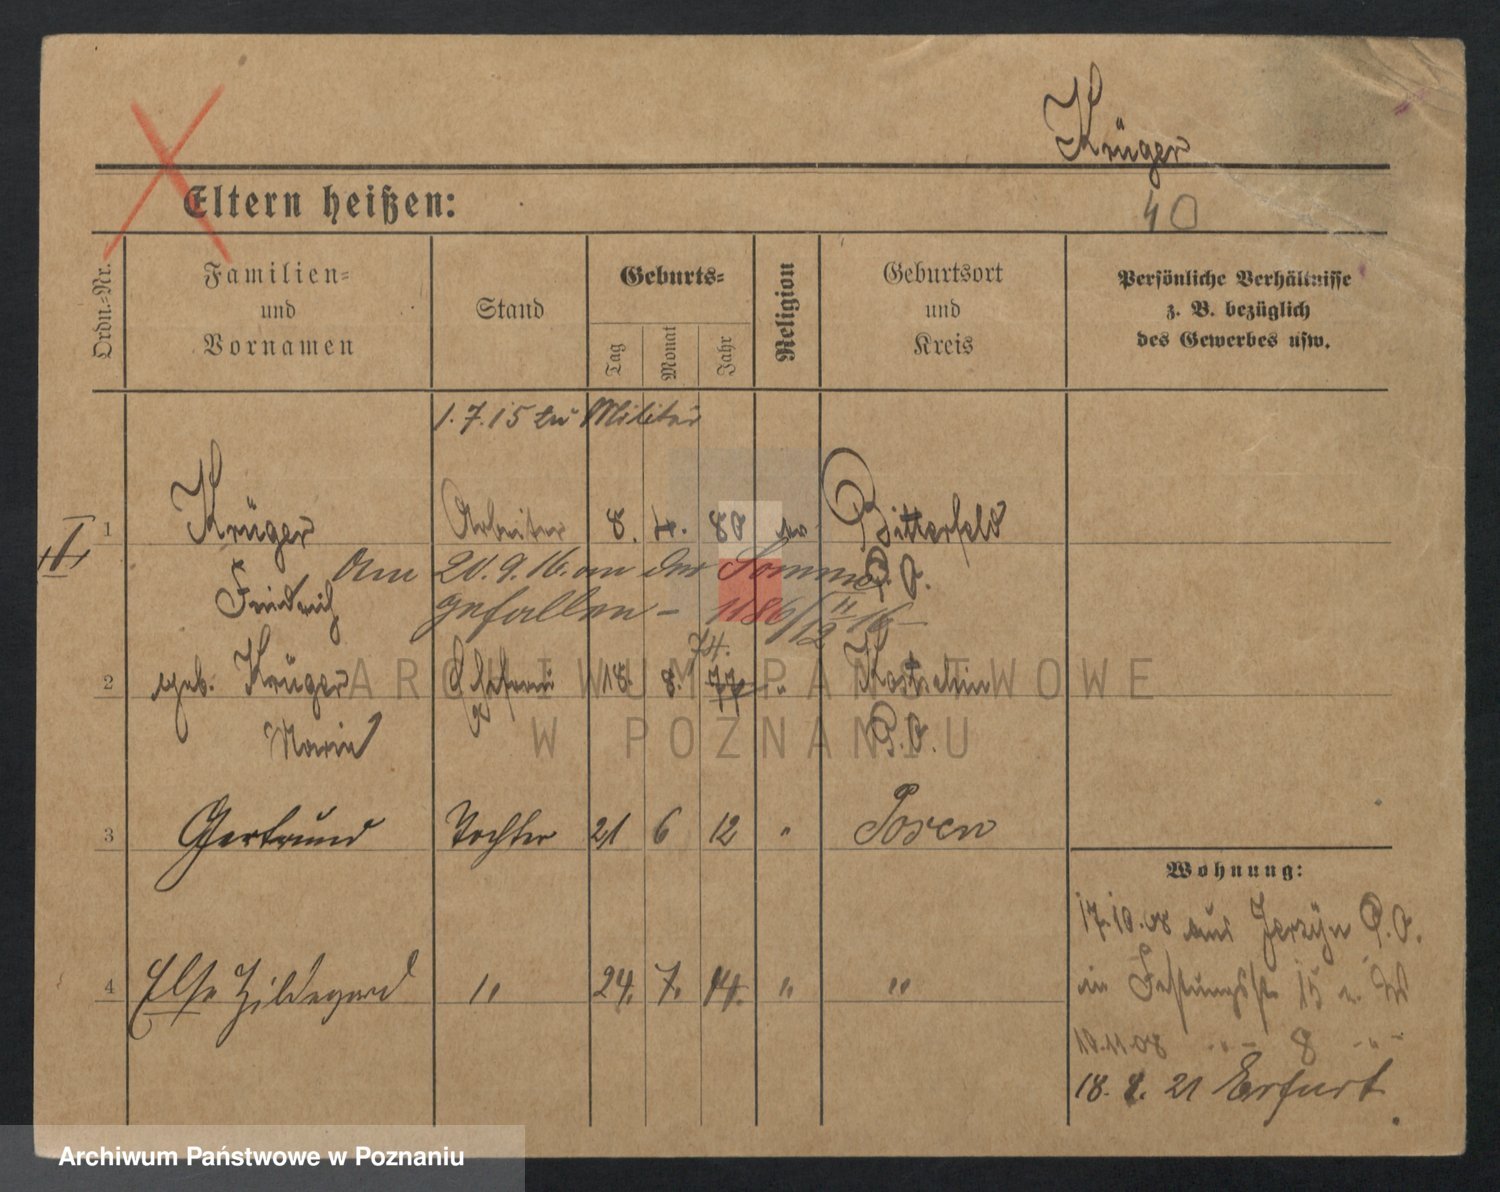 Krüger
Eltern heißen:
40
Ordn.-Nr.
Familien-
und
Vornamen
Stand
Geburts-
Tag
Monat
Jahr
Religion
Geburtsort
und
Kreis
Persönliche Verhältnisse
z. B. bezüglich
des Gewerbes usw.
1.7.15 zu Militär
1 Krüger Arbeiter 8. 4. 80 ev. Bitterfeld
Am 20.9.16 an der Somme P.O.
Friedrich gefallen – 1186/
74.
2 geb. Krüger Ehefrau 18. 8. 77 " Kostschin
Marie P.O.
3 Gertrund Tochter 21 6 12 " Posen
Wohnung:
17.10.08 aus Jerzyn P.O.
4 Else Hildegard " 24. 7. 14. " "
in Festungsstr 15 a. W
10.11.08 - " - 8 - " -
18. 8. 21 Erfurt
ARCHIWUM PAŃSTWOWE
W POZNANIU
Archiwum Państwowe w Poznaniu